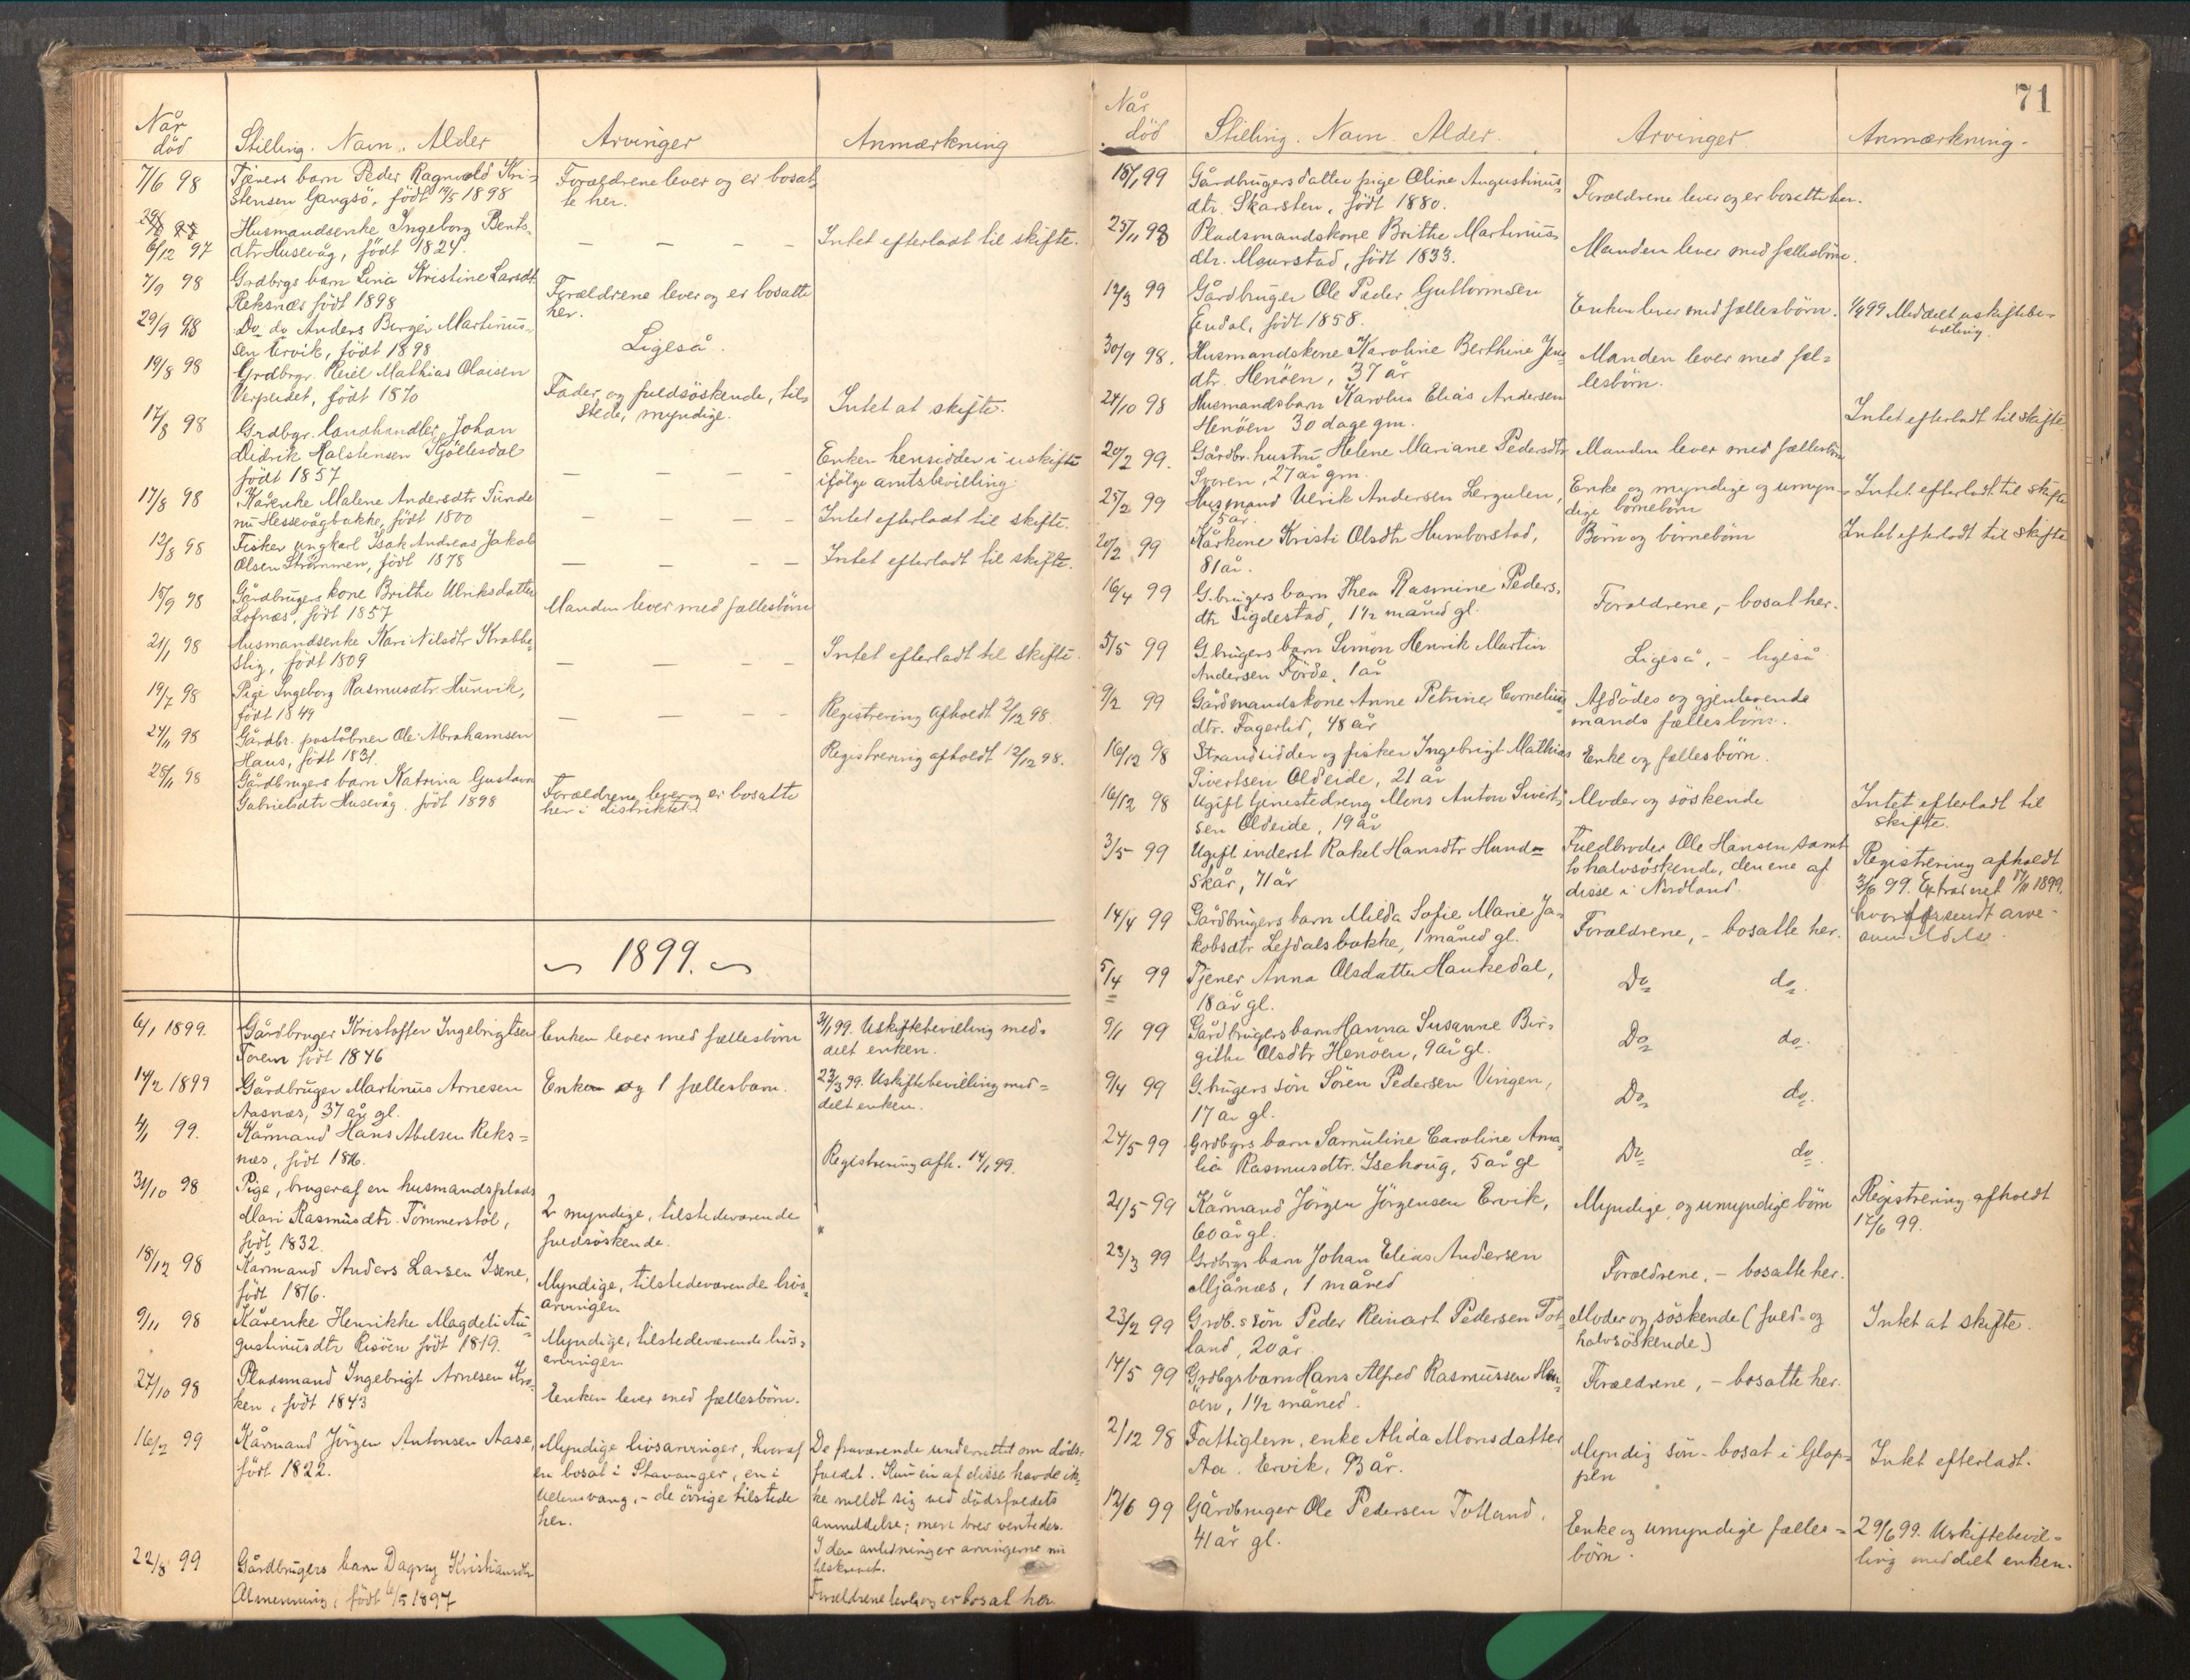 Når
död
Stilling. Navn. Alder
Arvinger
Anmærkning
7/6 98
Tjeners barn Peder Ragnvald Kri-
stensen Gangsö, födt 19/5 1898
Forældrene lever og er bosat-
te her.
6/12 97
Husmandsenke Ingeborg Bents-
dtr Husevåg, födt 1824.
— — — —
Intet efterladt til skifte.
7/9 98
Grdbrgs barn Lina Kristine Larsdt
Reksnæs födt 1898
Forældrene lever og er bosatte
her.
29/9 98
Do do Anders Birger Martinus-
sen Ervik, födt 1898
Ligeså.
19/8 98
Grdbrgr. Reiel Mathias Olaisen
Verpeidet, födt 1870
Fader og fuldsöskende, til-
stede, myndige.
Intet at skifte.
17/8 98
Grdbgr. landhandler Johan
Didrik Halstensen Kjöllesdal
födt 1857
— — — —
Enken hensidder i uskifte
ifölge amtsbevilling.
17/8 98
Kårenke Malene Andersdtr Tunde
nu Hessevågbakke, födt 1800
— — — —
Intet efterladt til skifte.
12/8 98
Fisker ungkarl Isak Andreas Jakob
Olsen Strömmen, födt 1878
— — — —
Intet efterladt til skifte.
15/9 98
Gårdbrugers kone Brithe Ulriksdatter
Lofnæs, födt 1857
Manden lever med fællesbörn
21/1 98
Husmandsenke Kari Nilsdtr Krabbe-
stig, födt 1809
— — — —
Intet efterladt til skifte.
19/7 98
Pige Ingeborg Rasmusdtr. Hunvik,
födt 1849
— — — —
Registrering afholdt 2/12 98.
24/11 98
Gårdbr. poståbner Ole Abrahamsen
Haus, födt 1831.
Registrering afholdt 12/12 98.
28/11 98
Gårdbrugers barn Katrina Gustava
Gabrielsdtr Husevåg. födt 1898
Forældrene lever og er bosatte
her i distriktet.
1899.
6/1 1899.
Gårdbruger Kristoffer Ingebrigtsen
Torem födt 1846
Enken lever med fællesbörn
31/1 99. Uskiftebevilling med-
delt enken.
14/2 1899
Gårdbruger Martinus Arnesen
Aasnæs, 37 år gl.
Enken og 1 fællesbarn.
23/3 99. Uskiftebevilling med-
delt enken.
4/1 99.
Kårmand Hans Abelsen Reks-
næs, födt 1816.
Registrering afh. 14/1 99.
31/10 98
Pige, bruger af en husmandsplads
Mari Rasmusdtr. Tömmerstöl,
födt 1832.
2 myndige, tilstedeværende
fuldsöskende.
18/12 98
Kårmand Anders Larsen Isene,
födt 1816.
Myndige, tilstedeværende livs-
arvinger.
9/11 98
Kårenke Henrikke Magdeli Au-
gustinusdtr Risöen födt 1819.
Myndige, tilstedeværende livs-
arvinger
27/10 98
Pladsmand Ingebrigt Arnesen Kro-
ken, födt 1843
Enken lever med fællesbörn.
16/2 99
Kårmand Jörgen Antonsen Aase,
födt 1822.
Myndige livsarvinger, hvoraf
en bosat i Stavanger, en i
Ullensvang, – de övrige tilstede
her.
De fraværende underrettet om döds-
faldet. Kun en af disse havde ik-
ke meldt sig ved dödsfaldets
anmeldelse; men brev ventedes.
I den anledning er arvingerne nu
tilskrevet.
22/8 99
Gårdbrugers barn Dagny Kristiansdtr
Almenning, födt 6/5 1897
Forældrene lever og er bosat her.
71
Når
död
Stilling. Navn. Alder.
Arvinger
Anmærkning.
18/1 99
Gårdbrugersdatter pige Oline Augustinus-
dtr. Skarsten, födt 1880.
Forældrene lever og er bosatte her.
25/11 98
Pladsmandskone Brithe Martinus-
dtr. Maurstad, födt 1833.
Manden lever med fællesbörn.
12/3 99
Gårdbruger Ole Peder Guttormsen
Endal, födt 1858.
Enken lever med fællesbörn.
Meddelt uskiftebe-
villing.
30/9 98.
Husmandskone Karoline Berthine Jens
dtr. Henöen, 37 år
Manden lever med fæl-
lesbörn.
24/10 98
Husmandsbarn Karolus Elias Andersen
Henöen 30 dage gm.
Intet efterladt til skifte.
20/2 99.
Gårdbr. hustru Helene Mariane Pedersdtr
Svoren, 27 år gm.
Manden lever med fællesbörn
25/2 99
Husmand Ulrik Andersen Lergulen,
75 år.
Enke og myndige og umyn-
dige börnebörn
Intet efterladt til skifte
20/2 99
Kårkone Kristi Olsdtr Humborstad,
81 år.
Börn og börnebörn
Intet efterladt til skifte
16/4 99
G.brugers barn Thea Rasmine Peders-
dtr Ligdestad, 1½ måned gl.
Forældrene, – bosat her.
5/5 99
G.brugers barn Simon Henrik Martin
Andersen Förde, 1 år
Ligeså, – ligeså
9/2 99
Gårdmandskone Anne Petrine Cornelius-
dtr. Fagerlid, 48 år
Afdödes og gjenlevende
mands fællesbörn.
16/12 98
Strandsidder og fisker Ingebrigt Mathias
Sivertsen Oldeide, 21 år
Enke og fællesbörn.
16/12 98
Ugift tjenestedreng Mons Anton Sivert-
sen Oldeide, 19 år
Moder og söskende
Intet efterladt til
skifte.
3/5 99
Ugift inderst Rakel Hansdtr Hund-
skår, 71 år
Fuldbroder Ole Hansen samt
to halvsöskende, den ene af
disse i Nordland.
Registrering afholdt
3/6 99. Extraheret 17/11 1899.
14/4 99
Gårdbrugers barn Milda Sofie Marie Ja-
kobsdtr Lefdalsbakke, 1 måned gl.
Forældrene, – bosatte her.
5/4 99
Tjener Anna Olsdatter Haukedal,
18 år gl.
Do do.
9/1 99
Gårdbrugers barn Hanna Susanne Bir-
githe Olsdtr Henöen, 9 år gl.
Do do.
9/4 99
G.brugers sön Sören Pedersen Vingen,
17 år gl.
Do do.
24/5 99
Grdbgrs barn Samuline Caroline Ama-
lia Rasmusdtr. Isehoug, 5 år gl
Do do.
21/5 99
Kårmand Jörgen Jörgensen Ervik,
60 år gl.
Myndige og umyndige börn
Registrering afholdt
17/6 99.
23/3 99
Grdbrgs barn Johan Elias Andersen
Mjånæs, 1 måned
Forældrene, – bosatte her.
23/2 99
Grdb.s sön Peder Reinart Pedersen Tot-
land, 20 år
Moder og söskende (fuld- og
halvsöskende)
Intet at skifte.
14/5 99
Grdbgs barn Hans Alfred Rasmussen Hen-
öen, 1½ måned.
Forældrene, – bosatte her.
2/12 98
Fattiglem, enke Alida Monsdatter
Aa. Ervik, 93 år.
Myndig sön – bosat i Glop-
pen
Intet efterladt.
12/6 99
Gårdbruger Ole Pedersen Totland,
41 år gl.
Enke og umyndige fælles-
börn.
29/6 99. Uskiftebevil-
ling meddelt enken.